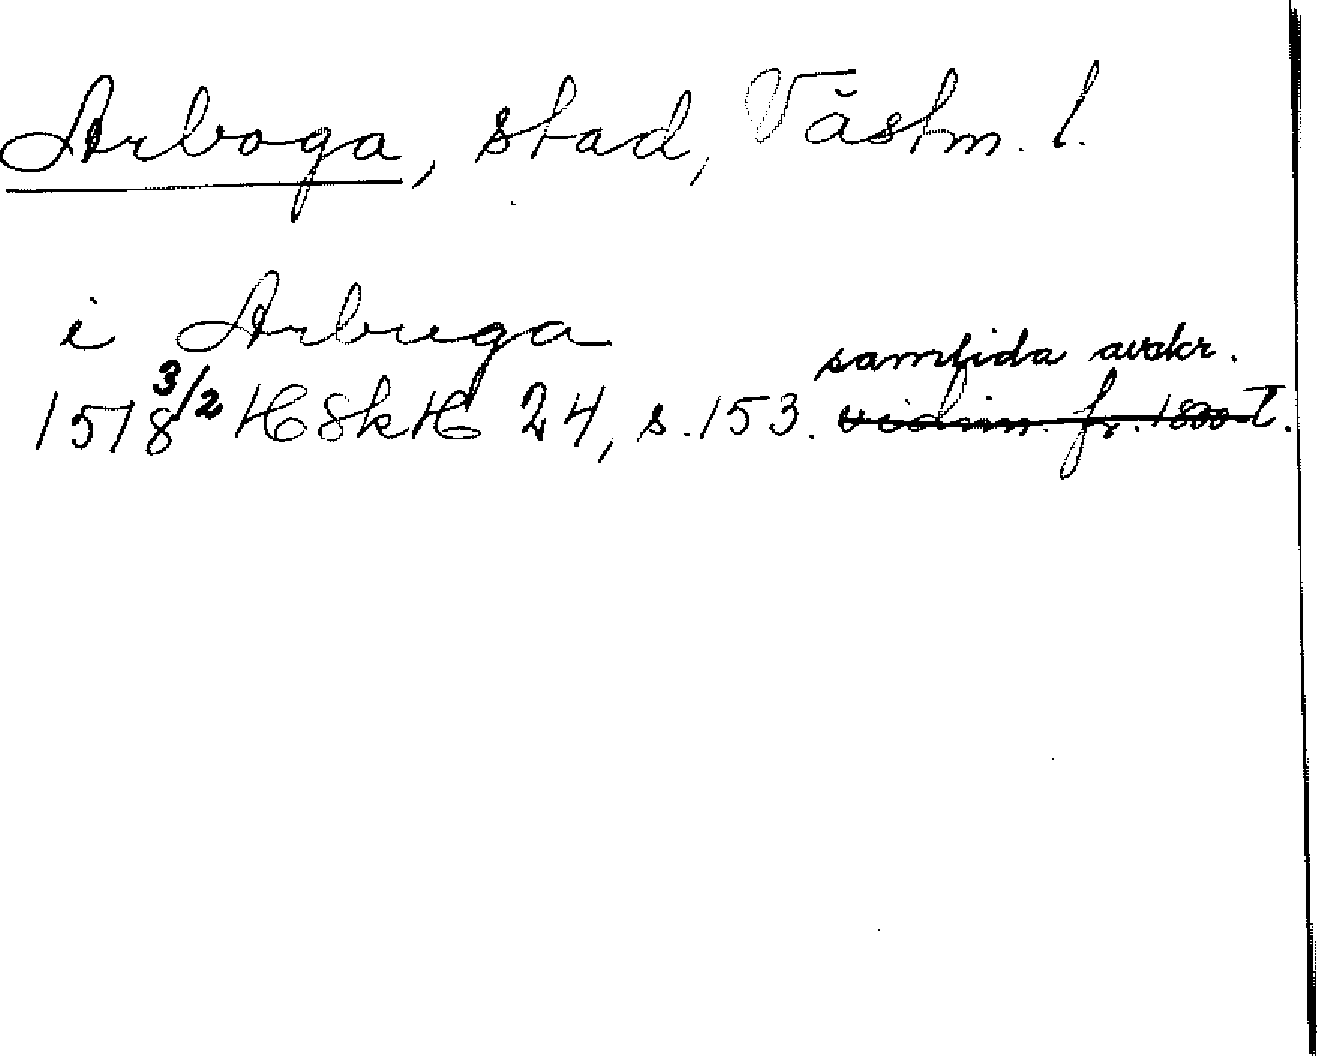 Arboga, stad, Västm. l.
i Arbuga
samtida avskr.
1518 3/2 HSkH 24, s. 153. vidim. fr. 1800 t.